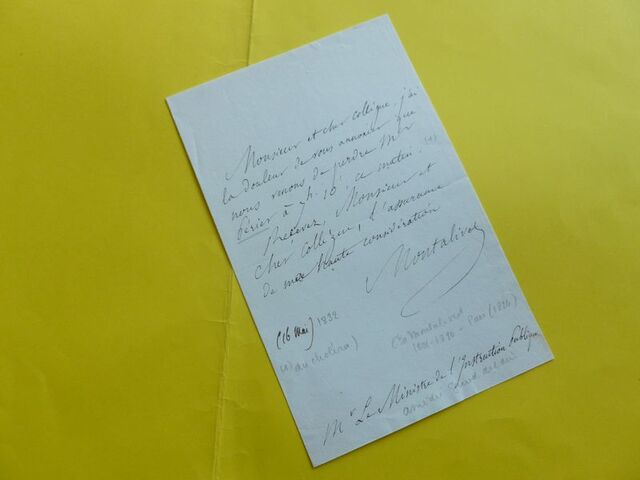 Monsieur et cher collègue, j'ai
la douleur de vous annoncer que
nous venons de perdre Mr
Périer à 7h. 10' ce matin. (1)
Recevez, Monsieur et
cher Collègue, l'assurance
de ma haute considération
Montalivet
(16 Mai) 1832
(1) du choléra)
(Cte Montalivet
1801-1880 - Pair (1826)
Mr Le Ministre de l'Instruction Publique